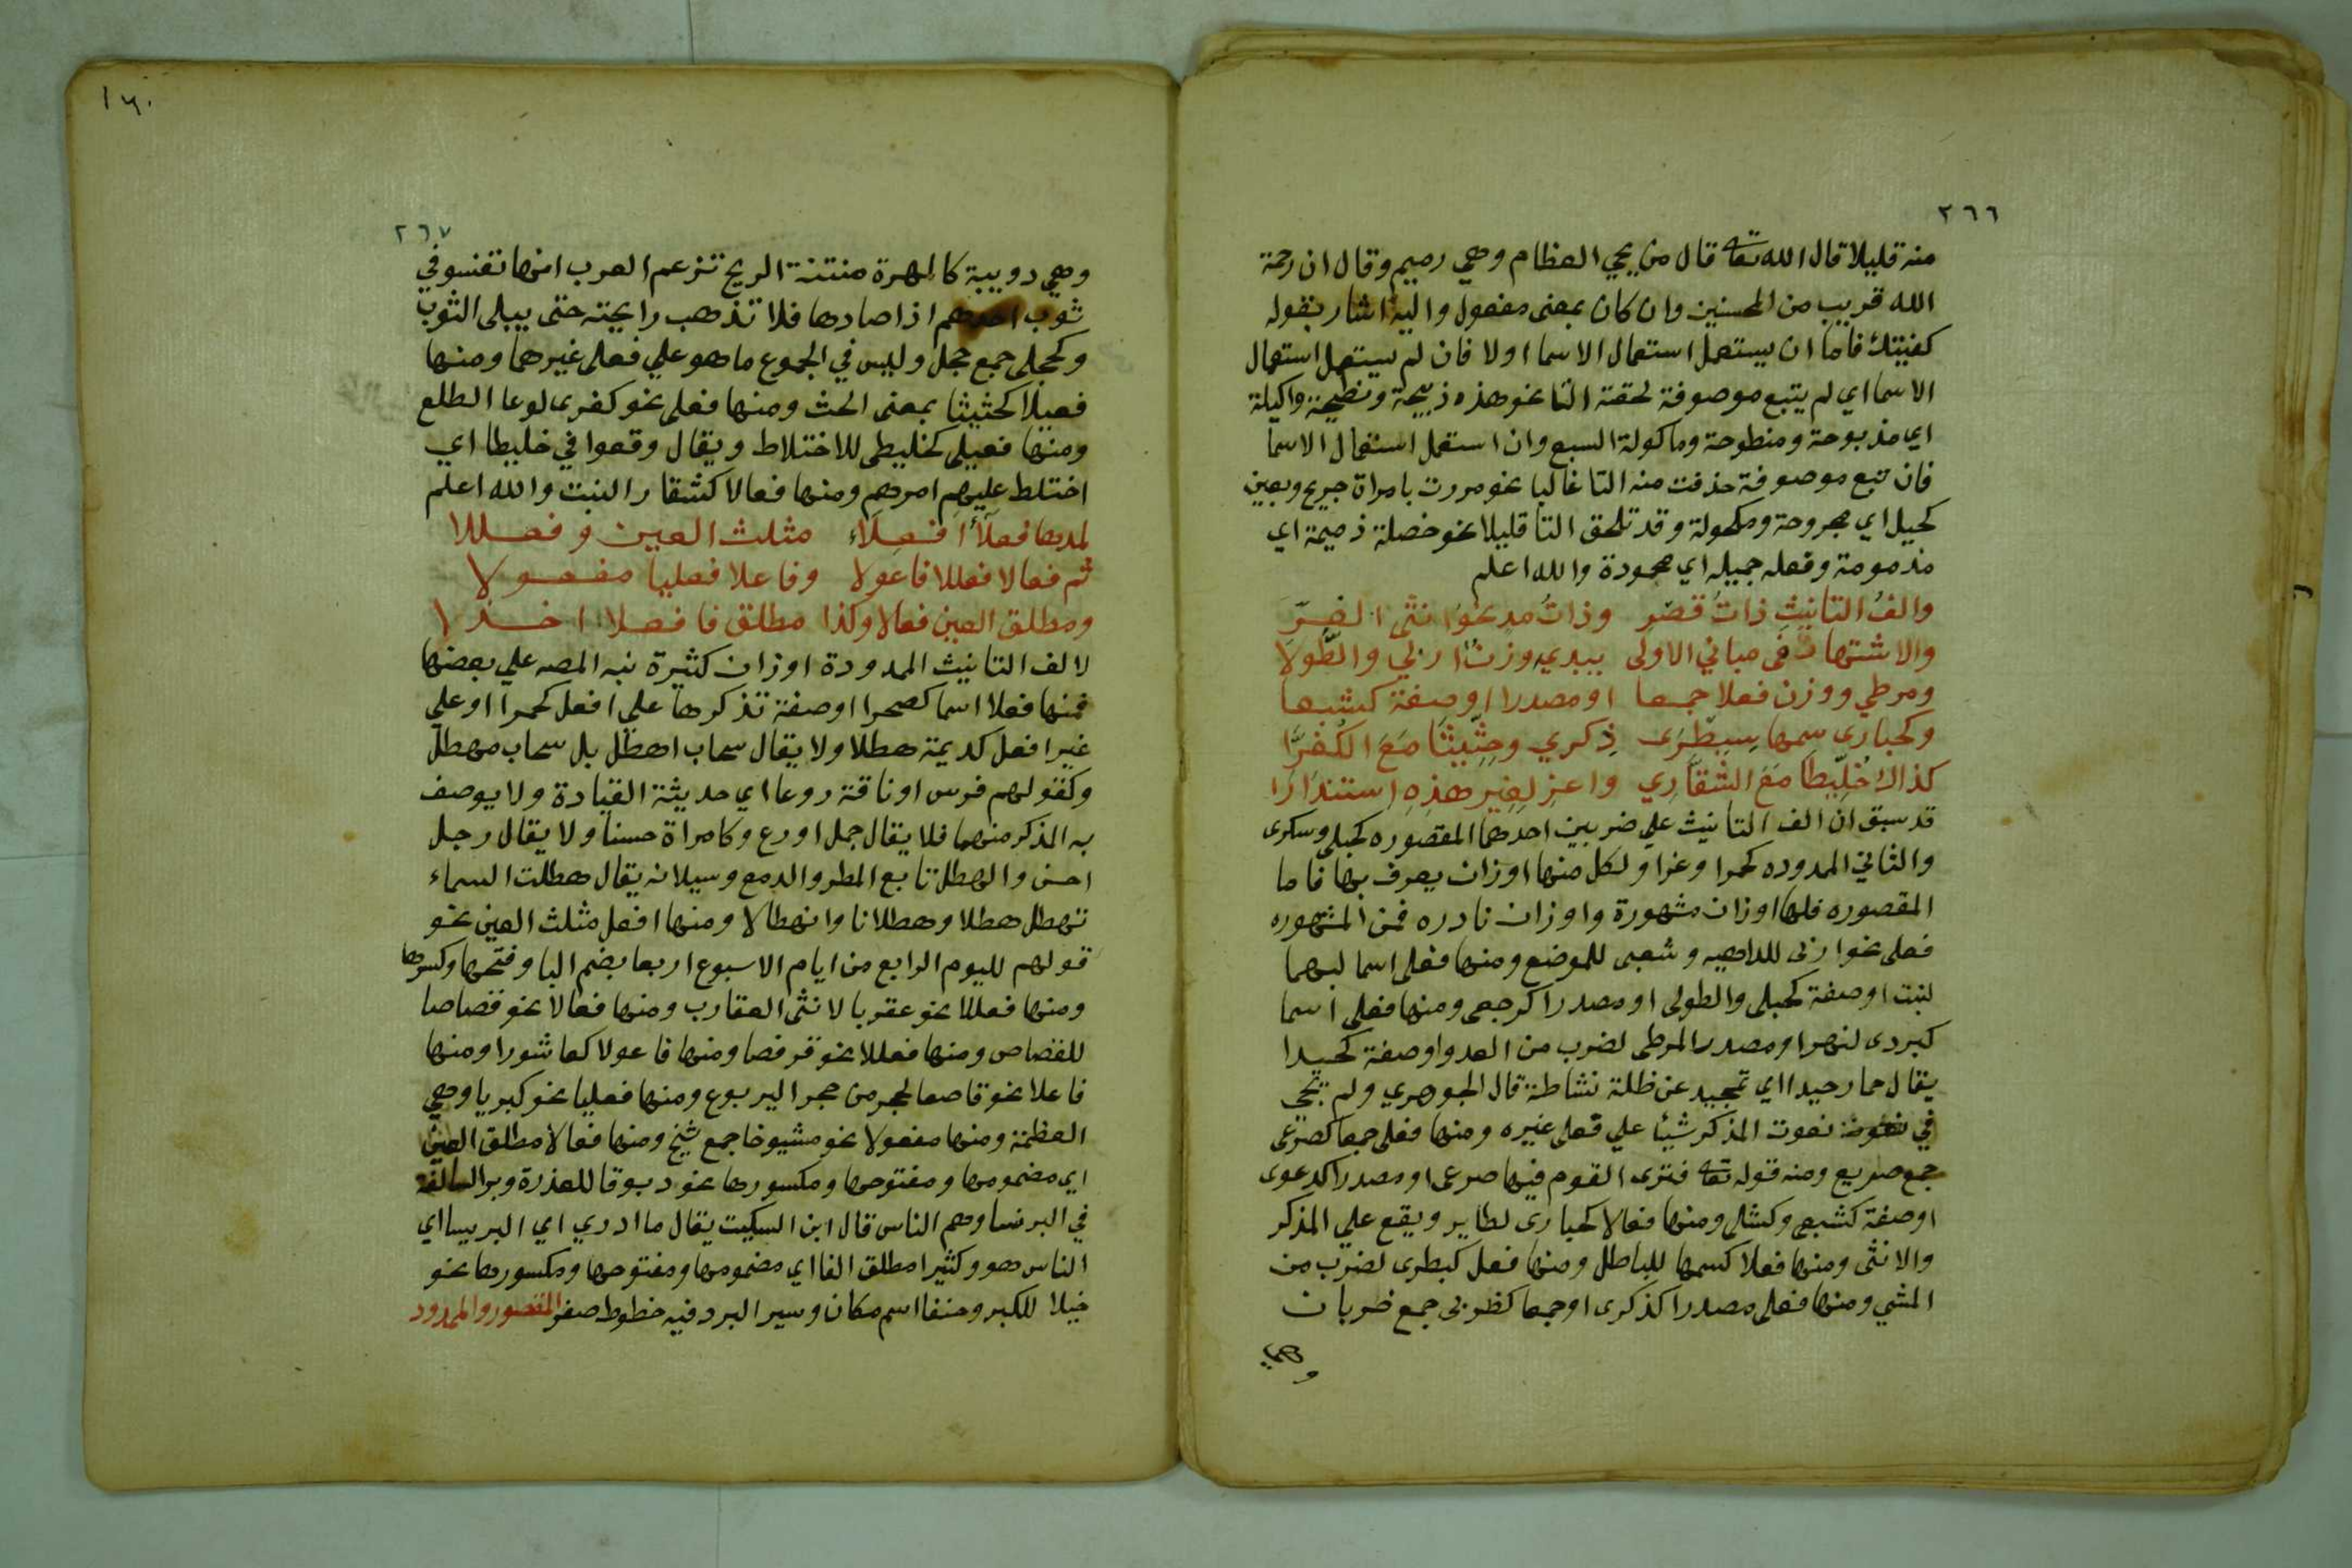 ٢٦٦
منه قليلا قال الله تعه قال من يحي العظام وهي رميم وقال ان رحمة
الله قريب من المحسنين وان كان بمعنى مفعول واليه اشار بقوله
كفتيتك فاما ان يستعمل استعمال الاسما اولا فان لم يستعمل استعمال
الاسما اي لم يتبع موصوفة لحقته التا نحو هذه ذبيحة ونطيحة واكيلة
اي مذبوحة ومنطوحة وماكولة السبع وان استعمل استعمال الاسما
فان تبع موصوفة حذفت منه التا غالبا نحو مررت بامراة جريح وبعين
كحيل اي مجروحة ومكحولة وقد تلحق التا قليلا نحو خصلة ذميمة اي
مذمومة وفعله جميله اي محمودة والله اعلم
والفُ التانيثِ ذاتُ قصْرِ وذاتُ مد نحوُ انثى الغرّ
والاشتهار في مباني الاولى يبديه وزنُ اربي والطّولا
ومرطي ووزن فعلا جمعا او مصدرا اوصفة كشبعا
وكحبارى سمها سِبِطْرَى ذِكري وحِثّيثَا مَعَ الكُفُرّا
كذاك خُلّيطا مَعَ الشّقّاري واعزِ لِغَيرِ هذِهِ استندارا
قد سبق ان الف التانيث علي ضربين احدهما المقصوره كحبلى وسكرى
والثاني الممدوده كحمرا وغرا ولكل منها اوزان يعرف بها فاما
المقصوره فلها اوزان مشهورة واوزان نادره فمن المشهوره
فعلى نحو اربى للداهيه وشعبى للموضع ومنها فعلى اسما لبهما
لنبت اوصفة كحبلى والطولى او مصدرا كرجعى ومنها فعلى اسما
كبردى لنهر او مصدرا لمرطى لضرب من العدو اوصفة كحيدا
يقال حمار حيدا اي تحيد عن ظله نشاطة قال الجوهري ولم يجي
في نعوت المذكر شيئا علي فعلى غيره ومنها فعلى جمعا كصرعى
جمع صريع ومنه قوله تعه فترى القوم فيها صرعى او مصدرا كدعوى
اوصفة كشبعى وكشلى ومنها فعالا كحبارى لطاير ويقع علي المذكر
والانثى ومنها فعلا كسمها للباطل ومنها فعل كبطرى لضرب من
المشي ومنها فعلى مصدرا كذكرى اوجمعا كظربى جمع ضربان
وهي
١٦٠
٢٦٧
وهي دويبة كالهرة منتنة الريح تزعم العرب انها تفسو في
ثوب احدهم اذا صادها فلا تذهب رايحته حتى يبلى الثوب
وكحجلى جمع حجل وليس في الجموع ما هو علي فعلى غيرهما ومنها
فعيلا كحثيثا بمعنى الحث ومنها فعلى نحو كفرى لوعا الطلع
ومنها فعيلى كخليطى للاختلاط ويقال وقعوا في خليطا اي
اختلط عليهم امرهم ومنها فعالا كشقارا لنبت والله اعلم
لمدها فعلاَء افعِلاَء مثلث العين وفعللا
ثم فعالا فعللا فاعولا وفاعلا فعليا مفعولا
ومطلق العين فعالا وكذا مطلق فا فعلا اخذا
لالف التانيث الممدودة اوزان كثيرة نبه المصه علي بعضها
فمنها فعلا اسما كصحرا اوصفة تذكرها علي افعل كحمرا اوعلي
غير افعل كديمة هطلا ولا يقال سحاب اهطل بل سحاب مهطل
وكقولهم فرس اوناقة روعا اي حديثة القيادة ولا يوصف
به المذكر منهما فلا يقال جمل اورع وكامراة حسنا ولا يقال رجل
احسن والهطل تابع المطر والدمع وسيلانه يقال هطلت السماء
تهطل هطلا وهطلانا وانهطالا ومنها افعل مثلث العين نحو
قولهم لليوم الرابع من ايام الاسبوع اربعا بضم البا وفتحها وكسرها
ومنها فعللا نحو عقربا لانثى العقارب ومنها فعالا نحو قصاصا
للقصاص ومنها فعللا نحو قرفصا ومنها فاعولا كعاشورا ومنها
فاعلا نحو قاصعا لجحر من حجر اليربوع ومنها فعليا نحو كبريا وهي
العظمة ومنها مفعولا نحو مشيوخا جمع شيخ ومنها فعالا مطلق العين
اي مضمومها ومفتوحها ومكسورها نحو دبوقا للعذرة وبرا
في البرنسا وهم الناس قال ابن السكيت يقال ما ادري اي البريسا اي
الناس هو وكثيرا مطلق الفا اي مضمومها ومفتوحها ومكسورها نحو
خيلا للكبر وحنفا اسم مكان وسير البرد فيه خطوط صفر المقصور والممدود